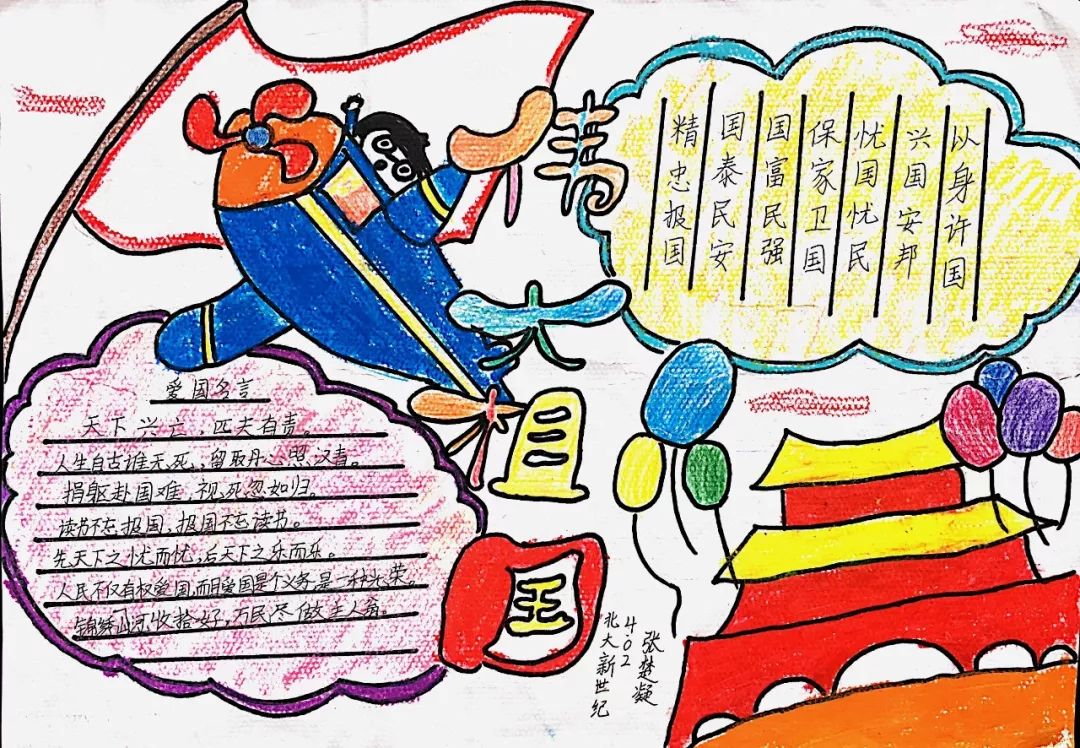 情大祖国
精忠报国
国泰民安
国富民强
保家卫国
忧国忧民
兴国安邦
以身许国
爱国名言
天下兴亡，匹夫有责。
人生自古谁无死，留取丹心照汉青。
捐躯赴国难，视死忽如归。
读书不忘报国，报国不忘读书。
先天下之忧而忧，后天下之乐而乐。
人民不仅有权爱国，而且爱国是个义务，是一种光荣。
锦绣山河收拾好，万民尽做主人翁。
北大新世纪
402
张楚凝